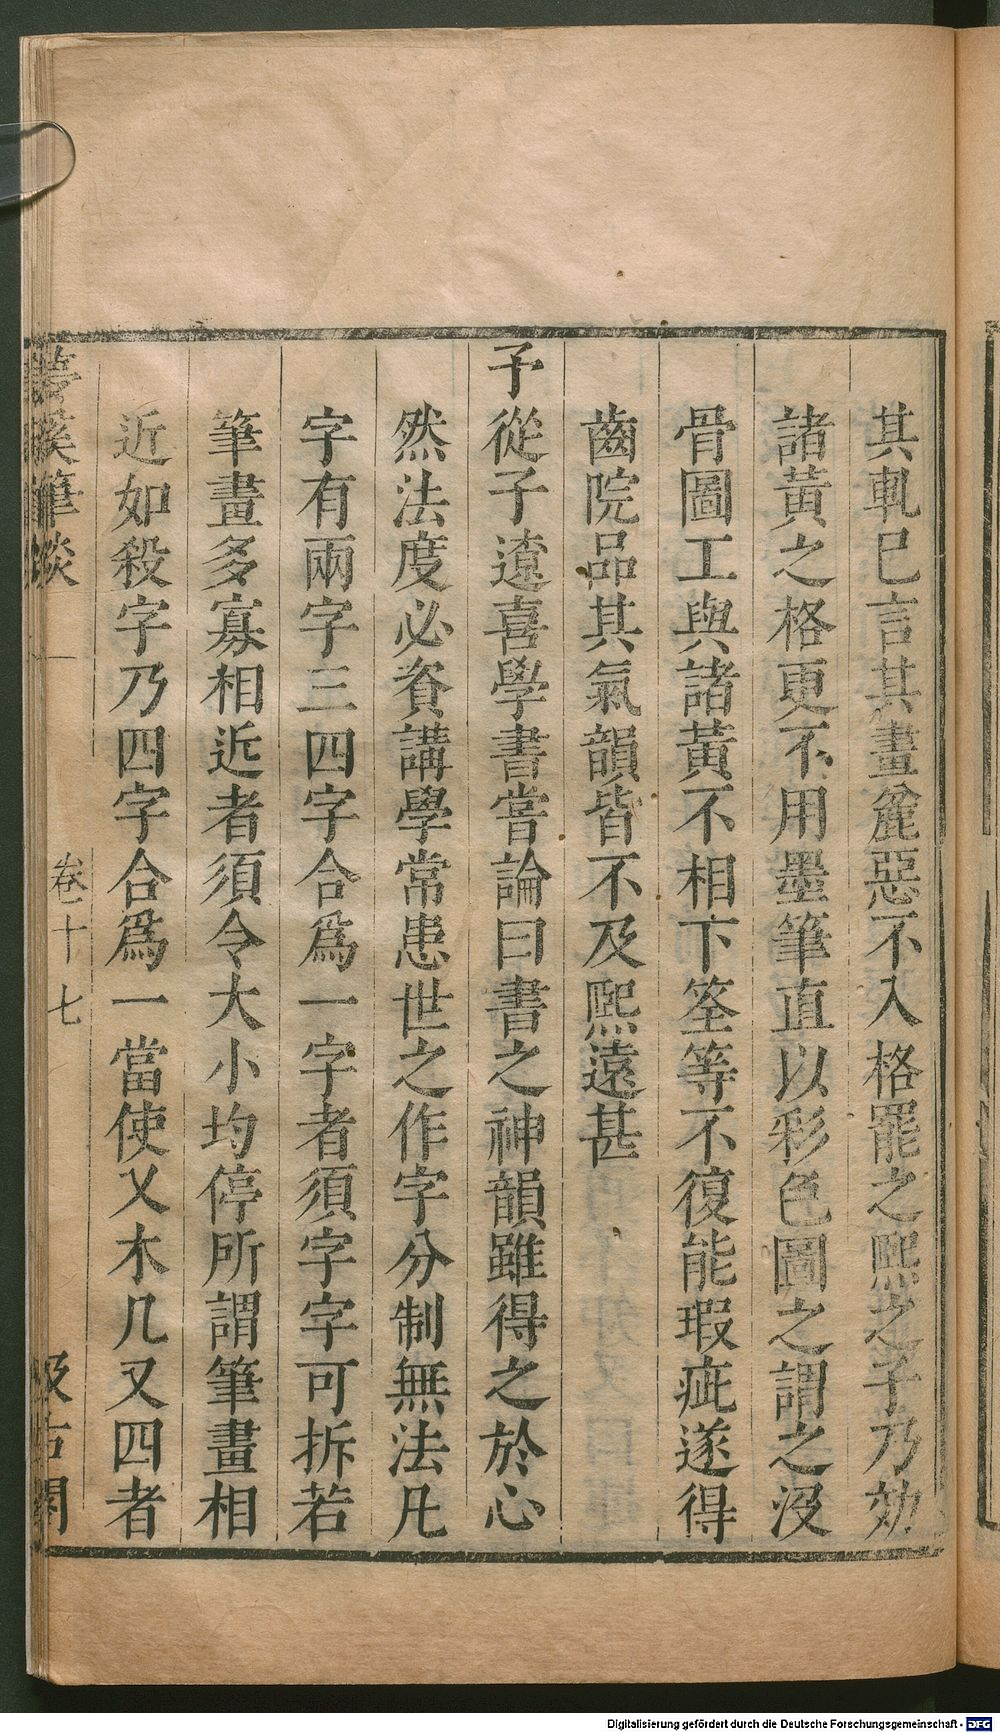 其軋巳言其畫麄惡不入格罷之熙之子乃効
諸黃之格更不用墨筆直以彩色圖之謂之沒
骨圖工與諸黃不相下筌等不復能瑕疵遂得
齒院品其氣韻皆不及熙遠甚
予從子遼喜學書嘗論曰書之神韻雖得之於心
然法度必資講學常患世之作字分制無法凡
字有兩字三四字合爲一字者須字字可拆若
筆畫多寡相近者須令大小均停所謂筆畫相
近如殺字乃四字合爲一當使乂木几又四者
夢溪筆談
卷十七
汲古閣
Digitalisierung gefördert durch die Deutsche Forschungsgemeinschaft - DFG